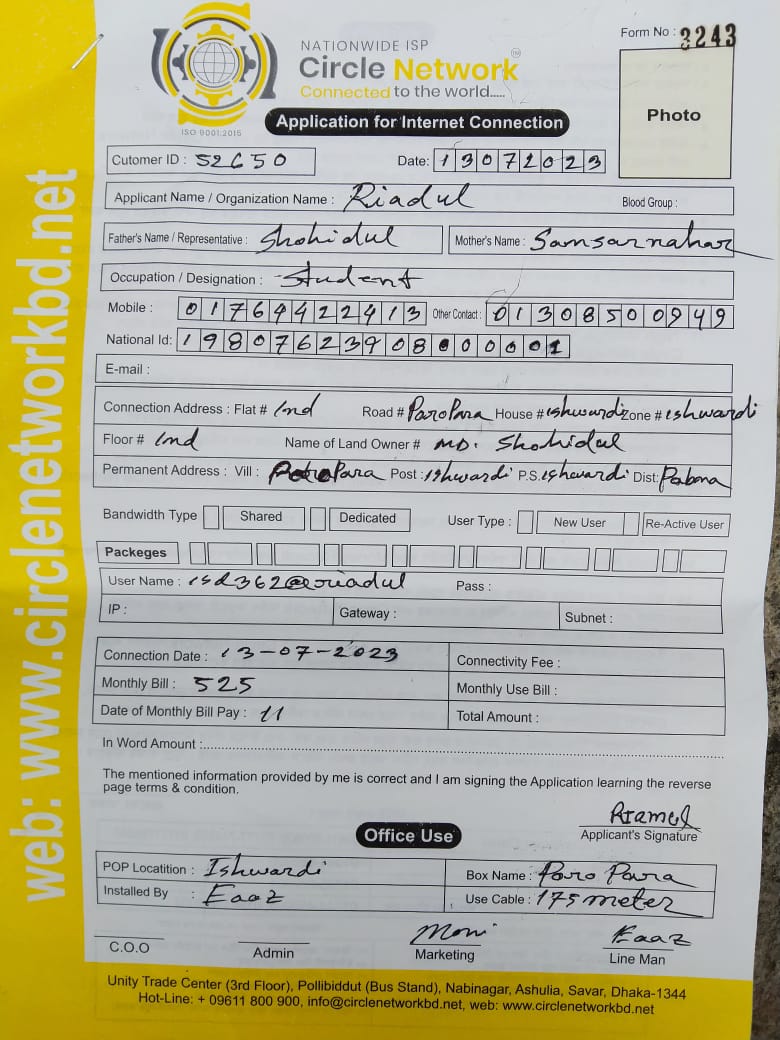 NATIONWIDE ISP
Circle Network
Connected to the world.....
ISO 9001:2015
Form No : 3243
Application for Internet Connection
Photo
Cutomer ID : 52650 Date: 13072023
Applicant Name / Organization Name : Riadul Blood Group :
Father's Name / Representative : Shohidul Mother's Name : Samsarnahar
Occupation / Designation : Student
Mobile : 01764422413 Other Contact : 01308500949
National Id: 19807623908000001
E-mail :
Connection Address : Flat # Ind Road # ParoPara House # ishwardi Zone # eshwardi
Floor # Ind Name of Land Owner # MD. Shohidul
Permanent Address : Vill : Para Post : ishwardi P.S. eshwardi Dist: Pabna
Bandwidth Type Shared Dedicated User Type : New User Re-Active User
Packeges
User Name : isd362@riadul Pass :
IP : Gateway : Subnet :
Connection Date : 13-07-2023 Connectivity Fee :
Monthly Bill : 525 Monthly Use Bill :
Date of Monthly Bill Pay : 11 Total Amount :
In Word Amount :
The mentioned information provided by me is correct and I am signing the Application learning the reverse
page terms & condition.
Applicant's Signature
Office Use
POP Locatition : Ishwardi Box Name : Paro Para
Installed By : Eaaz Use Cable : 175 meter
Moni Eaaz
C.O.O Admin Marketing Line Man
Unity Trade Center (3rd Floor), Pollibiddut (Bus Stand), Nabinagar, Ashulia, Savar, Dhaka-1344
Hot-Line: + 09611 800 900, info@circlenetworkbd.net, web: www.circlenetworkbd.net
web: www.circlenetworkbd.net